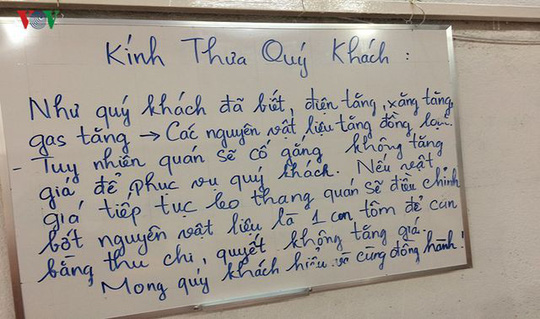 VOV
Kính Thưa Quý Khách :
Như quý khách đã biết, điện tăng, xăng tăng,
gas tăng → Các nguyên vật liệu tăng đồng loạt.
- Tuy nhiên quán sẽ cố gắng không tăng
giá để phục vụ quý khách. Nếu vật
giá tiếp tục leo thang quán sẽ điều chỉnh
bớt nguyên vật liệu là 1 con tôm để cân
bằng thu chi, quyết không tăng giá.
Mong quý khách hiểu và cùng đồng hành!